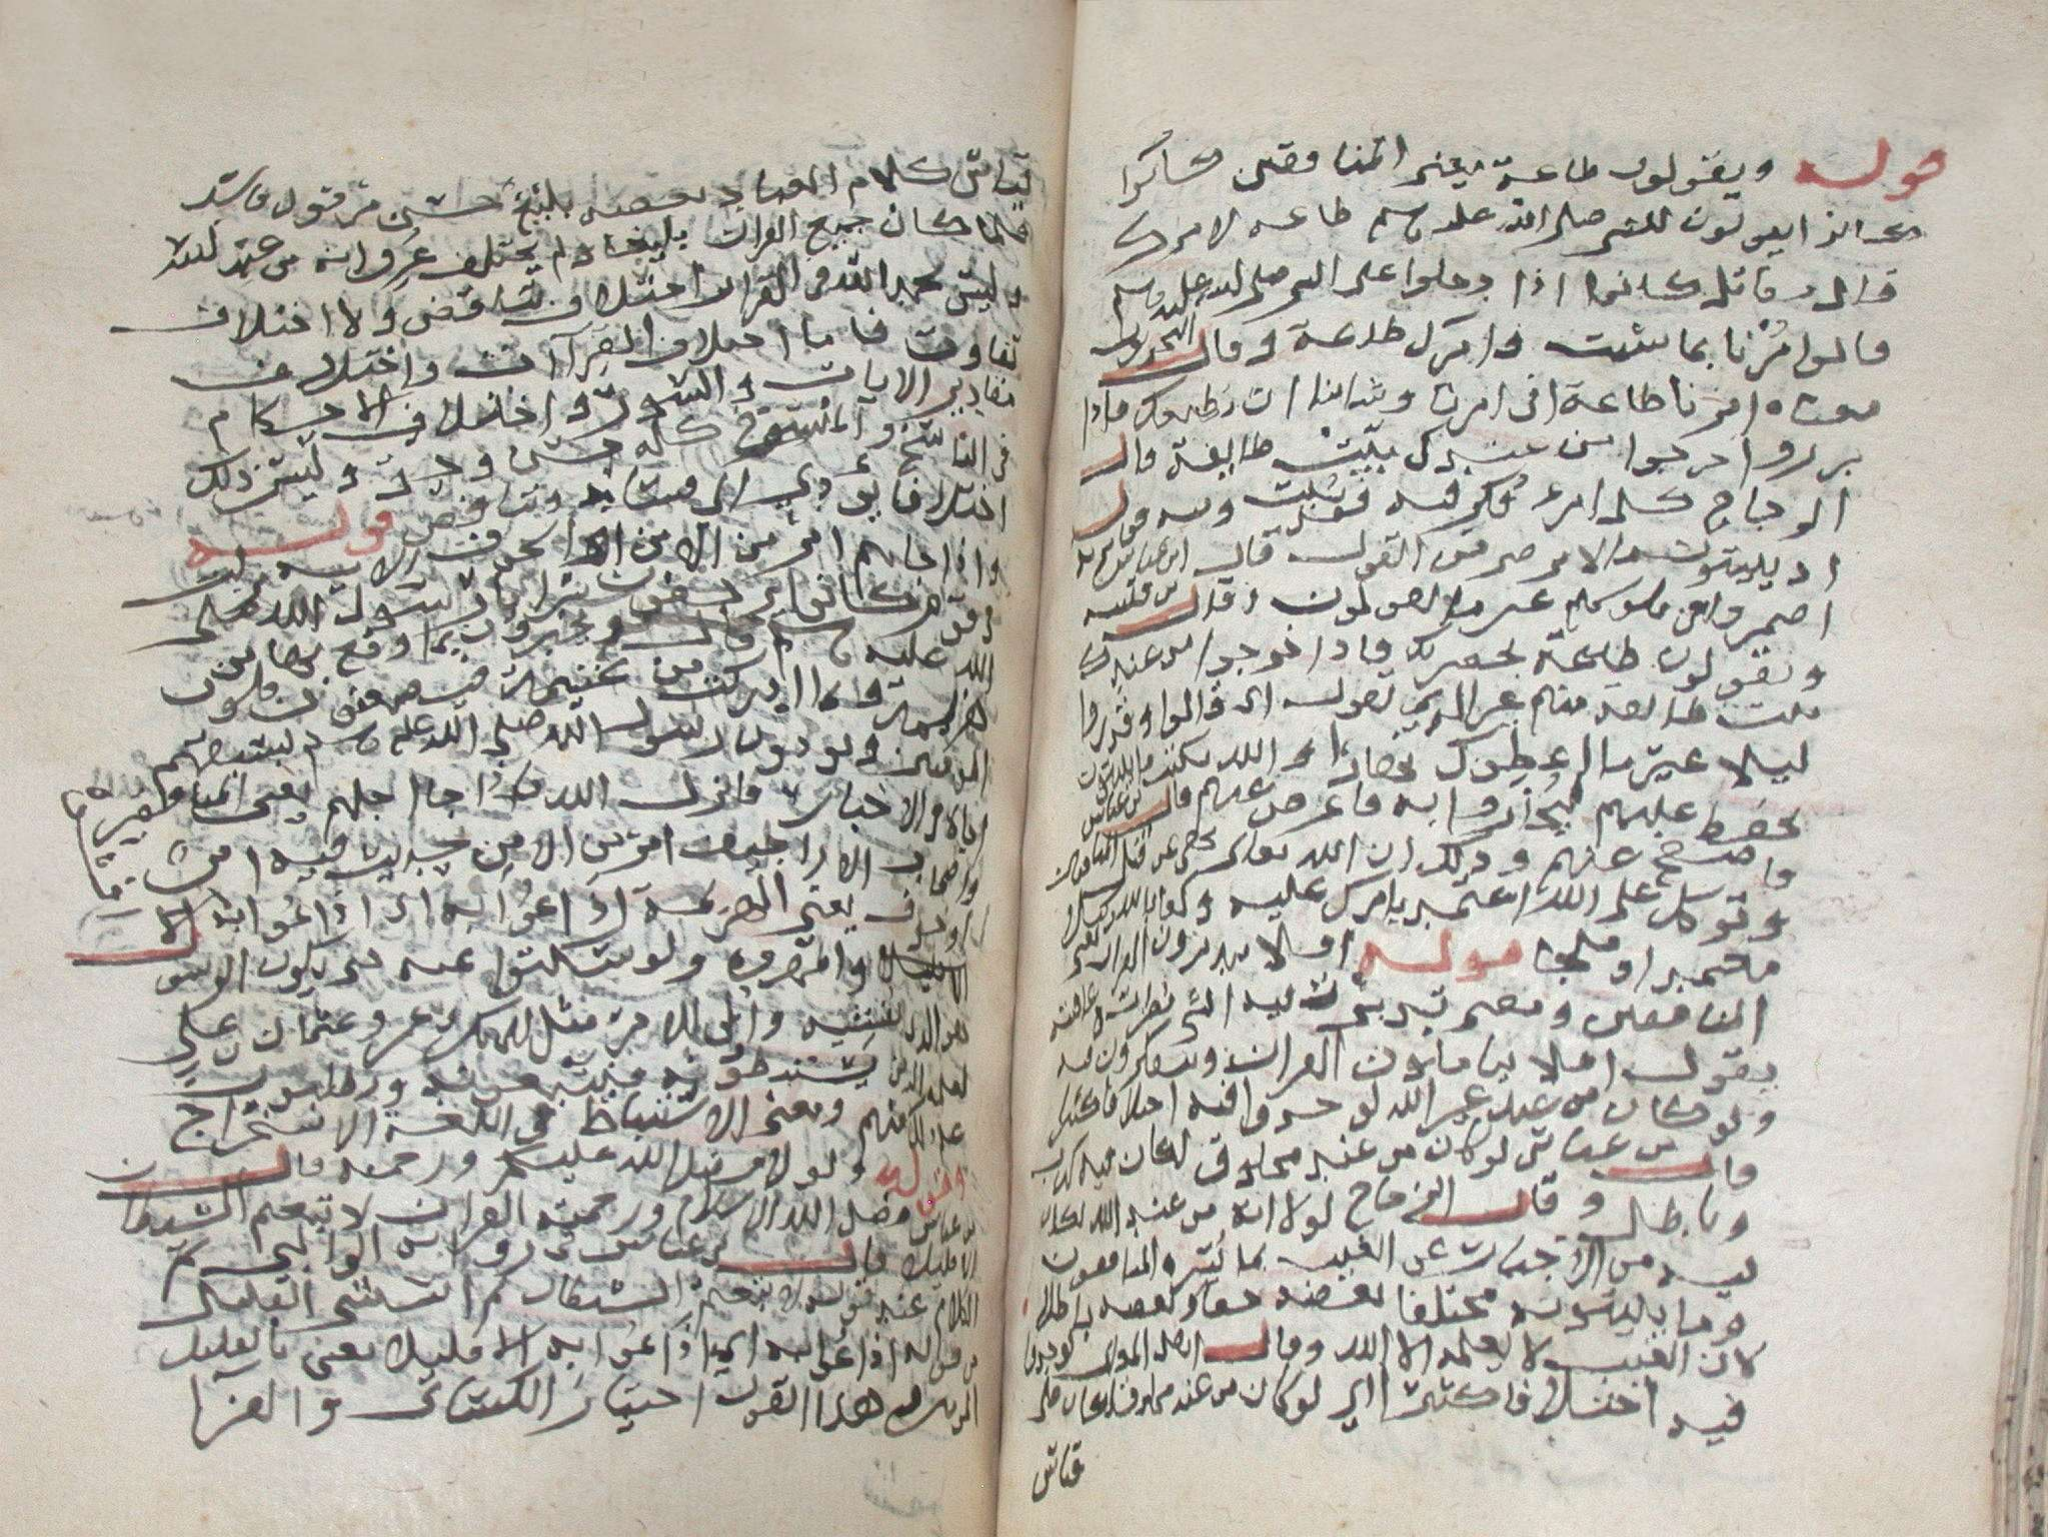 قوله ويقولون طاعة يعني المنافقين كانوا
يقولون للنبي صلى الله عليه وسلم طاعة لامرك
قال مقاتل كانوا اذا دخلوا على النبي صلى الله عليه وسلم
قالوا مُرْنا بما شئت فامرك طاعة وقال النحويون
معناه امرنا طاعة اي امرنا وشاننا ان نطيعك فاذا
برزوا خرجوا من عندك بيّت طايفة قال
الزجاج كل امر فُكر فيه فقد بُيّت ومنه قوله
اذ يبيتون ما لا يرضى من القول قال ابن عباس
اضمروا في قلوبهم غير ما يقولون وقال بن قتيبة
ويقولون طاعة بحضرتك فاذا خرجوا من عندك
بيت طايفة منهم غير الذي تقول اي قالوا وقدروا
ليلا غير ما اعطوك نهارا والله يكتب ما يبيتون
يحفظ عليهم ليُجازوا به فاعرض عنهم قال بن عباس
فاصفح عنهم وذلك ان الله تعالى نهى عن قتل المنافقين
وتوكل على الله اعتمد بامرك عليه وكفى بالله وكيلا
معتمدا وملجا قوله افلا يتدبرون القران يعني
المنافقين ومعنى تدبرت الشي نظرت في عاقبته
يقول افلا يتاملون القران ويتفكرون فيه
ولو كان من عند غير الله لوجدوا فيه اختلافا كثيرا
قال بن عباس لو كان من عند مخلوق لكان فيه كذب
وباطل وقال الزجاج لولا انه من عند الله لكان
ليه من الاخبار عن الغيب بما يُسره المنافقون
وما يبيتونه مختلفا بعضه حقا وبعضه باطلا
لان الغيب لا يعلمه الا الله وقال اهل المعاني لوجدوا
فيه اختلافا كثيرا اي لو كان من عند مخلوق لكان على
قياس
قياس كلام العباد بعضه بليغ حسن مرذول فاسد
فلما كان جميع القران بليغا ولم يختلف عرف انه من عند الله
وليس بحمد الله في القران اختلاف تناقض ولا اختلاف
تفاوت فاما اختلاف القراآت واختلاف
مقادير الايات والسور واختلاف الاحكام
في الناسخ والمنسوخ كله حسن وليس ذلك
اختلافا يودي الى فساد وتناقض قوله
واذا جاهم امر من الامن او الخوف الاية نزلت
في قوم كانوا يرجفون بسرايا رسول الله صلى
الله عليه وسلم ويخبرون بما وقع بها من
هزيمة وما ادركت من غنيمة فيضعفون قلوب
المومنين ويوذون رسول الله صلى الله عليه وسلم بسبقهم
اياه بالاخبار فانزل الله واذا جاهم يعني المنافقين
واصحاب الاراجيف امر من الامن حديث فيه امن
او خوف يعني الهزيمة اذاعوا به اي اذاعوا به
وافشوه ولو سكتوا عنه حتى يكون الرسول
هو الذي يفشيه واولي الامر مثل ابي بكر وعمر وعثمان وعلي
لعلمه الذين يستنبطونه يتبعونه ويطلبون
علم ذلك منهم ومعنى الاستنباط في اللغة الاستخراج
وقوله ولولا فضل الله عليكم ورحمته قال
بن عباس فضل الله الاسلام ورحمته القران لاتبعتم الشيطان
الا قليلا قال بن عباس في رواية الوالبي تم
الكلام عند قوله لاتبعتم الشيطان ثم استثنى القليل
من قوله اذاعوا به اي اذاعوا به الا قليلا يعني بالقليل
المومنين هذا القول اختيار الكسائي والفرا